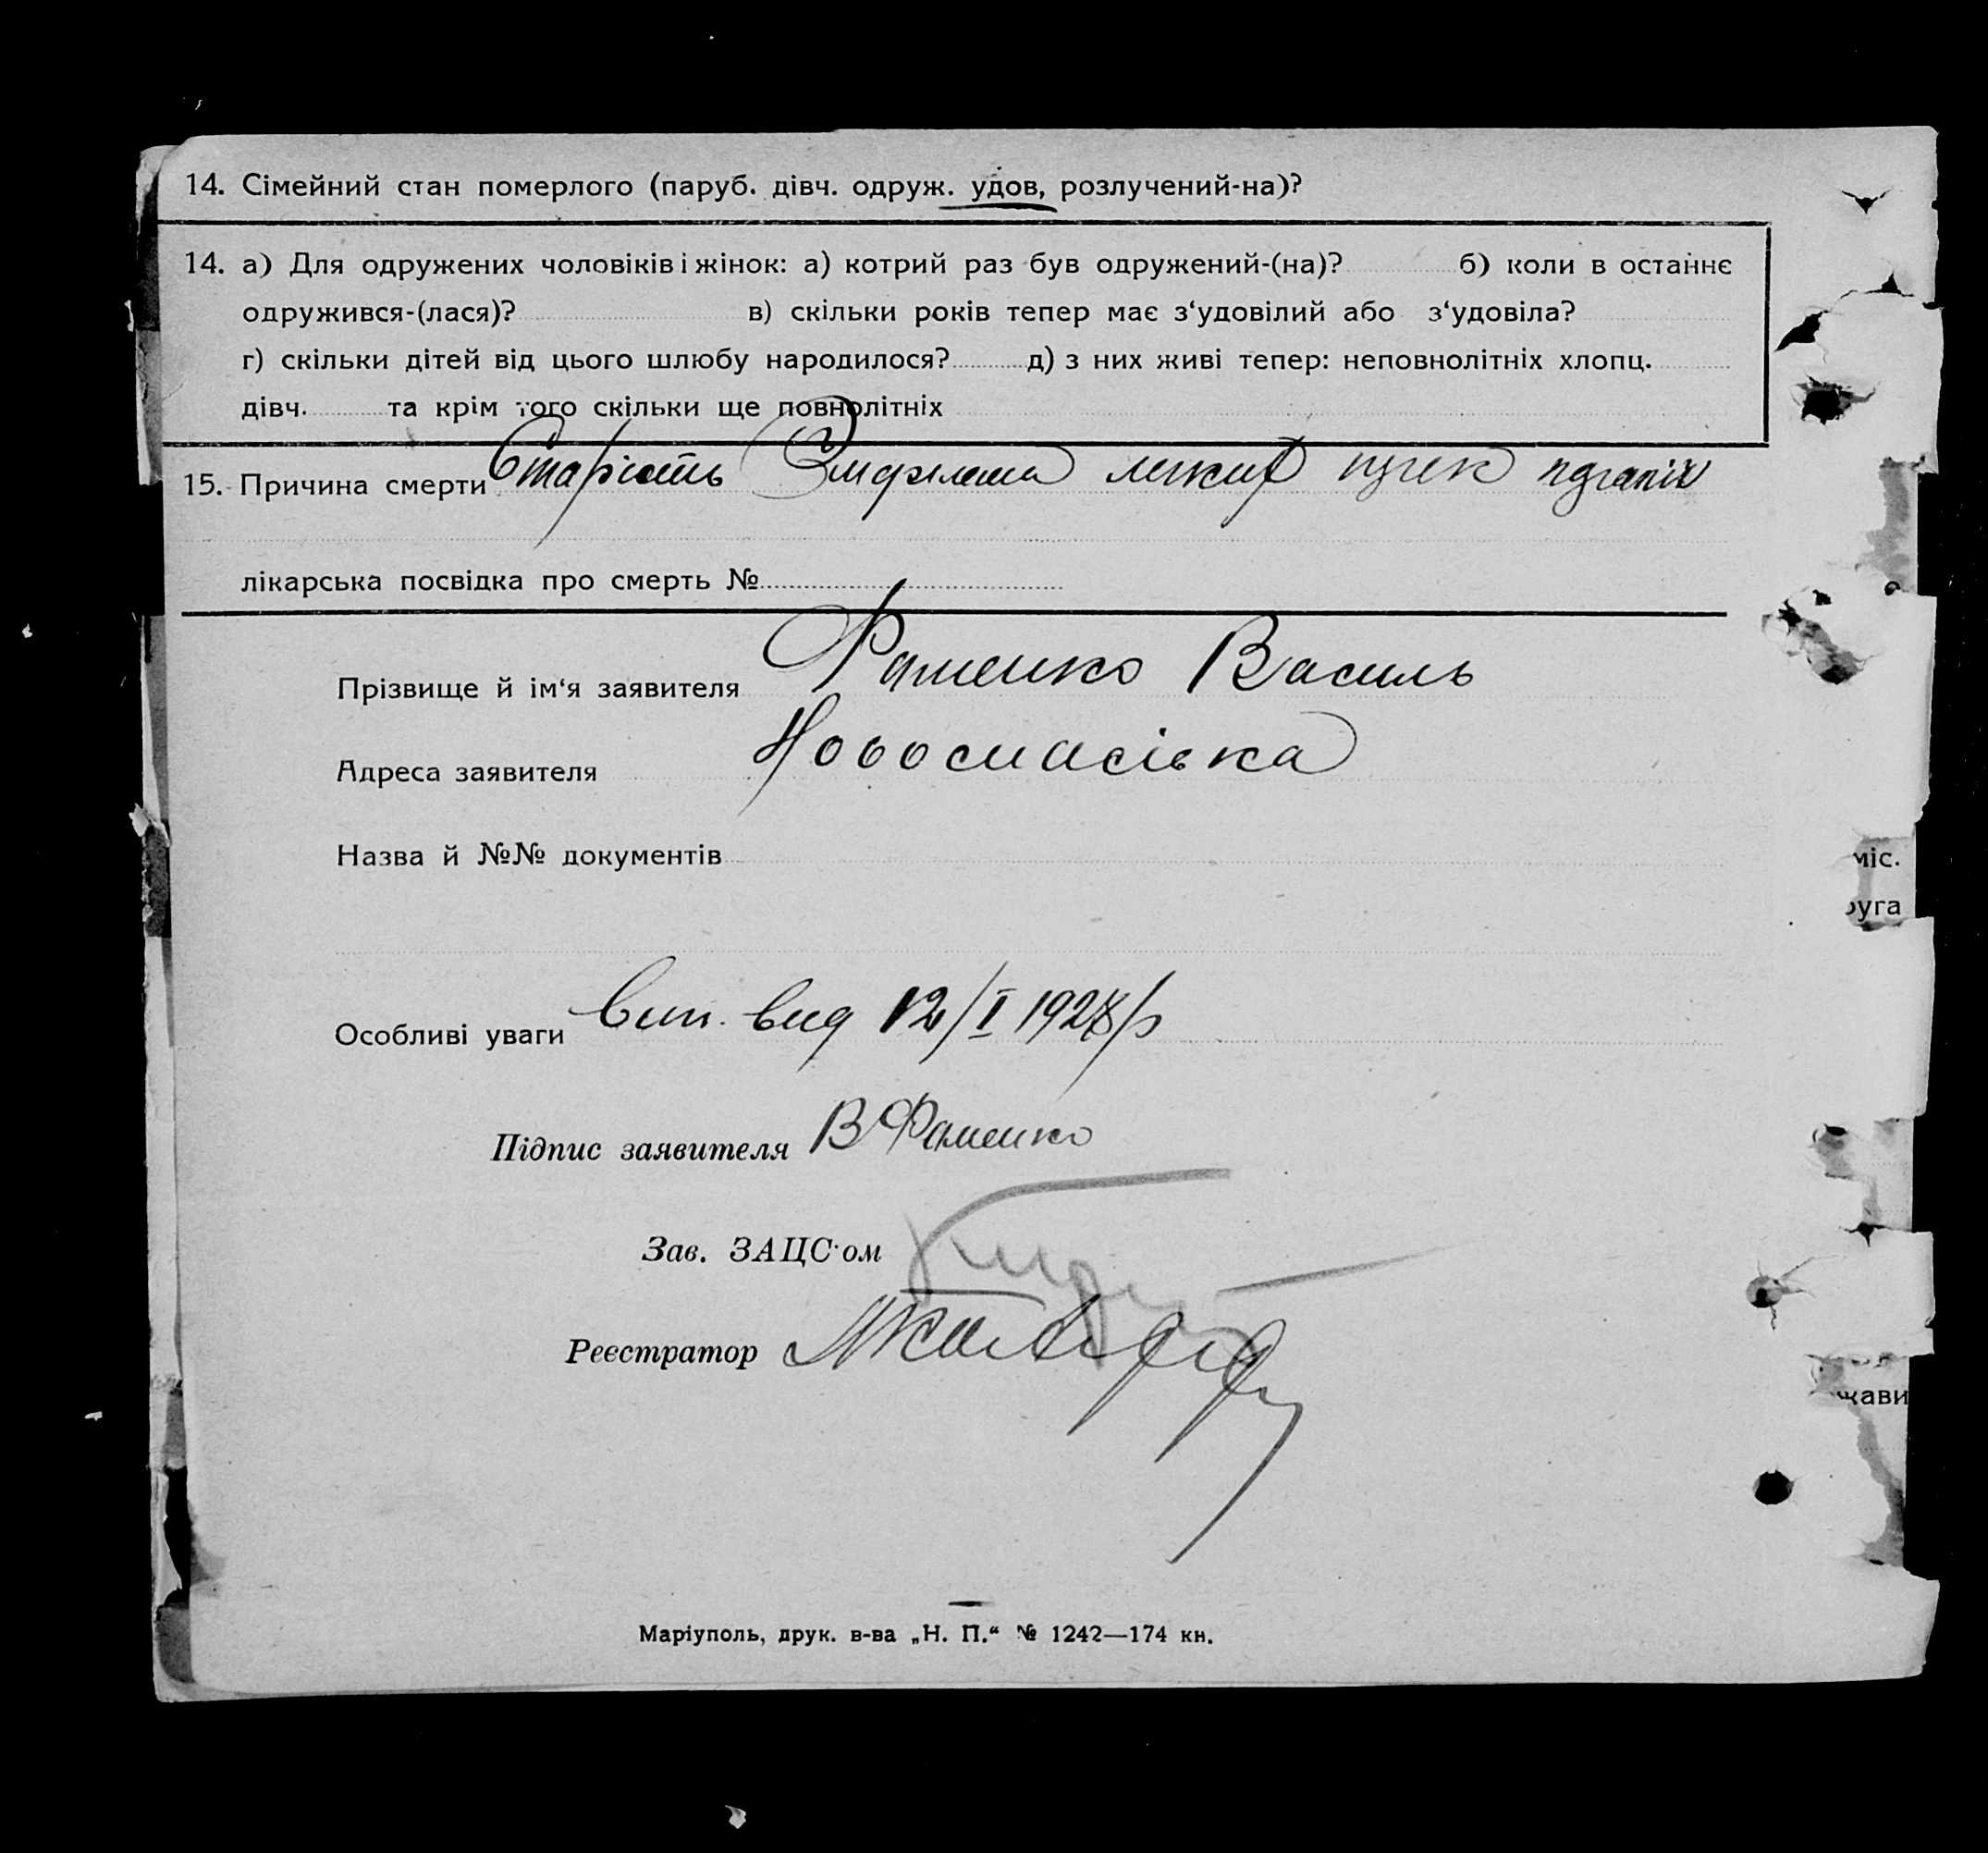 14. Сімейний стан померлого (паруб. дівч. одруж. удов, розлучений-на)?
14. а) Для одружених чоловіків і жінок: а) котрий раз був одружений-(на)? б) коли в останнє
одружився-(лася)? в) скільки років тепер має з‘удовілий або з‘удовіла?
г) скільки дітей від цього шлюбу народилося? д) з них живі тепер: неповнолітніх хлопц.
дівч. та крім того скільки ще повнолітніх
15. Причина смерти Старість
лікарська посвідка про смерть №
Прізвище й ім‘я заявителя Фаменко Василь
Адреса заявителя
Назва й №№ документів
міс.
руга
Особливі уваги Вип. вид 12/I 1928/р
Підпис заявителя В Фаменко
Зав. ЗАЦС·ом
Реєстратор
жави
Маріуполь, друк. в-ва „Н. П.“ № 1242—174 кн.